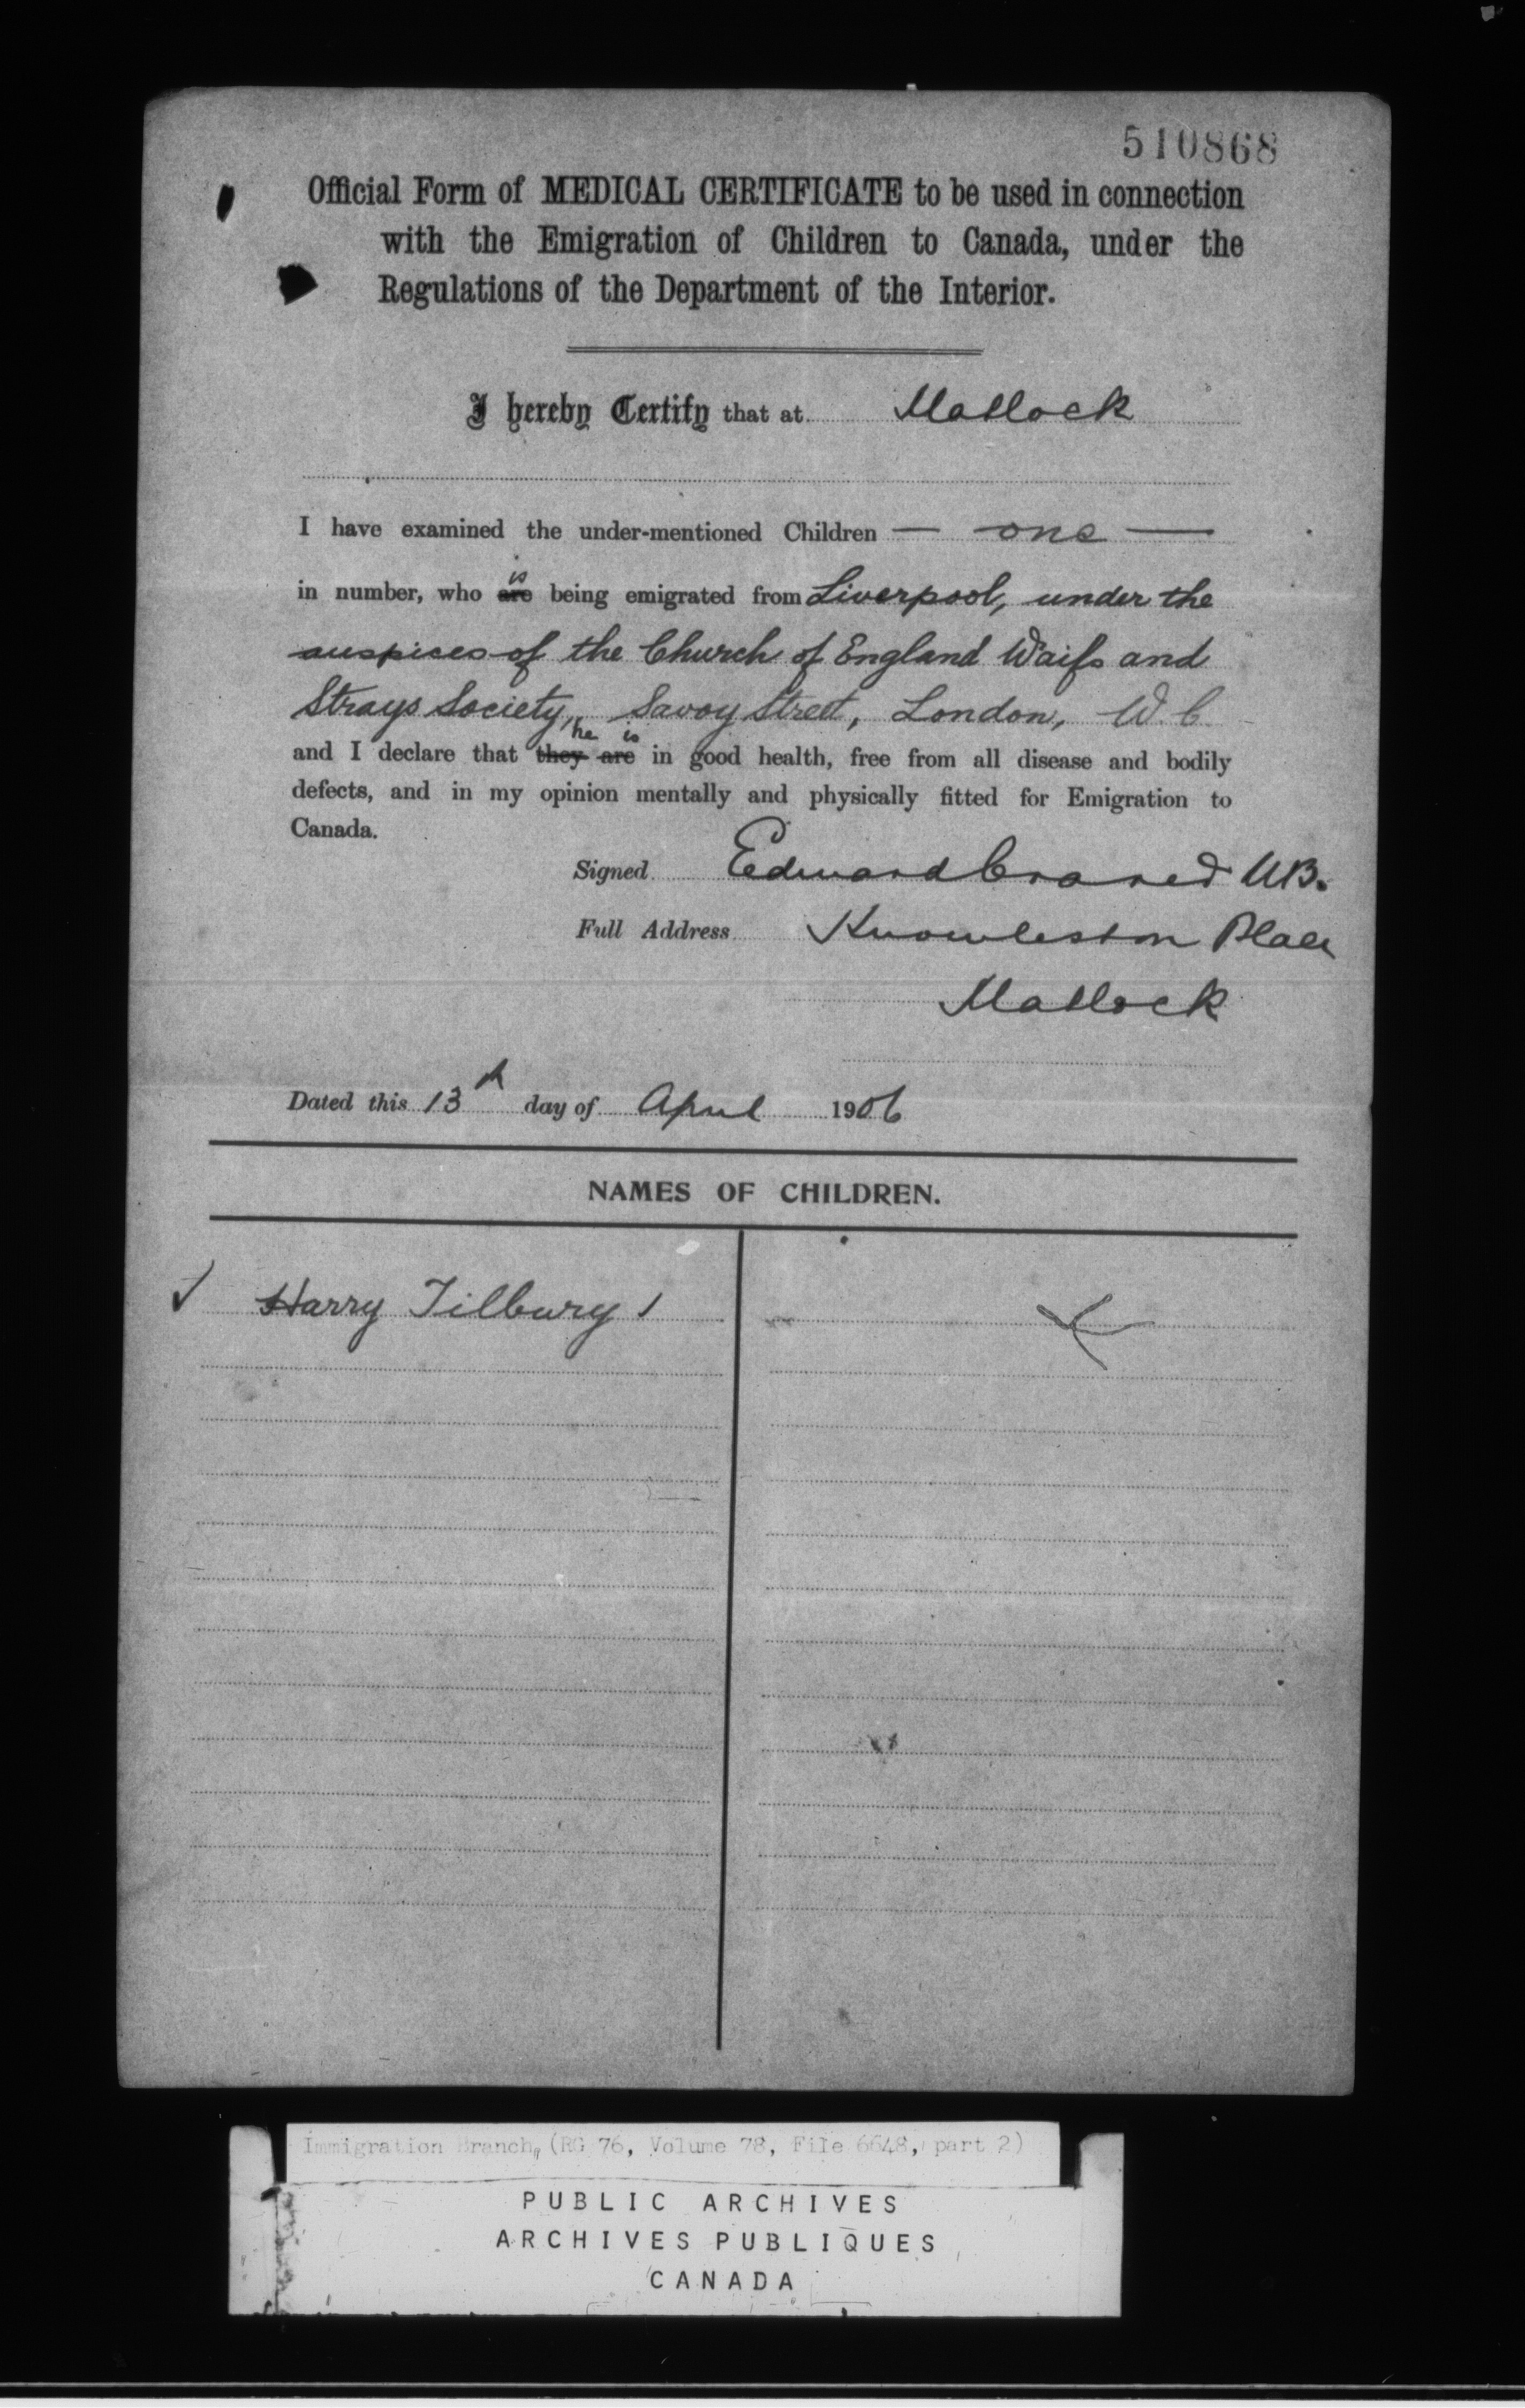 510868
Official Form of MEDICAL CERTIFICATE to be used in connection
with the Emigration of Children to Canada, under the
Regulations of the Department of the Interior.
I hereby Certify that at Matlock
I have examined the under-mentioned Children — one —
is
in number, who are being emigrated from Liverpool, under the
auspices of the Church of England Waifs and
Strays Society, Savoy Street, London, W.C
he is
and I declare that they are in good health, free from all disease and bodily
defects, and in my opinion mentally and physically fitted for Emigration to
Canada.
Signed Edward MB.
Full Address Knowleston Place
Matlock
Dated this 13th day of April 1906
NAMES OF CHILDREN.
Harry Tilbury 1
Immigration Branch, (RG 76, Volume 78, File 6648, part 2)
PUBLIC ARCHIVES
ARCHIVES PUBLIQUES
CANADA